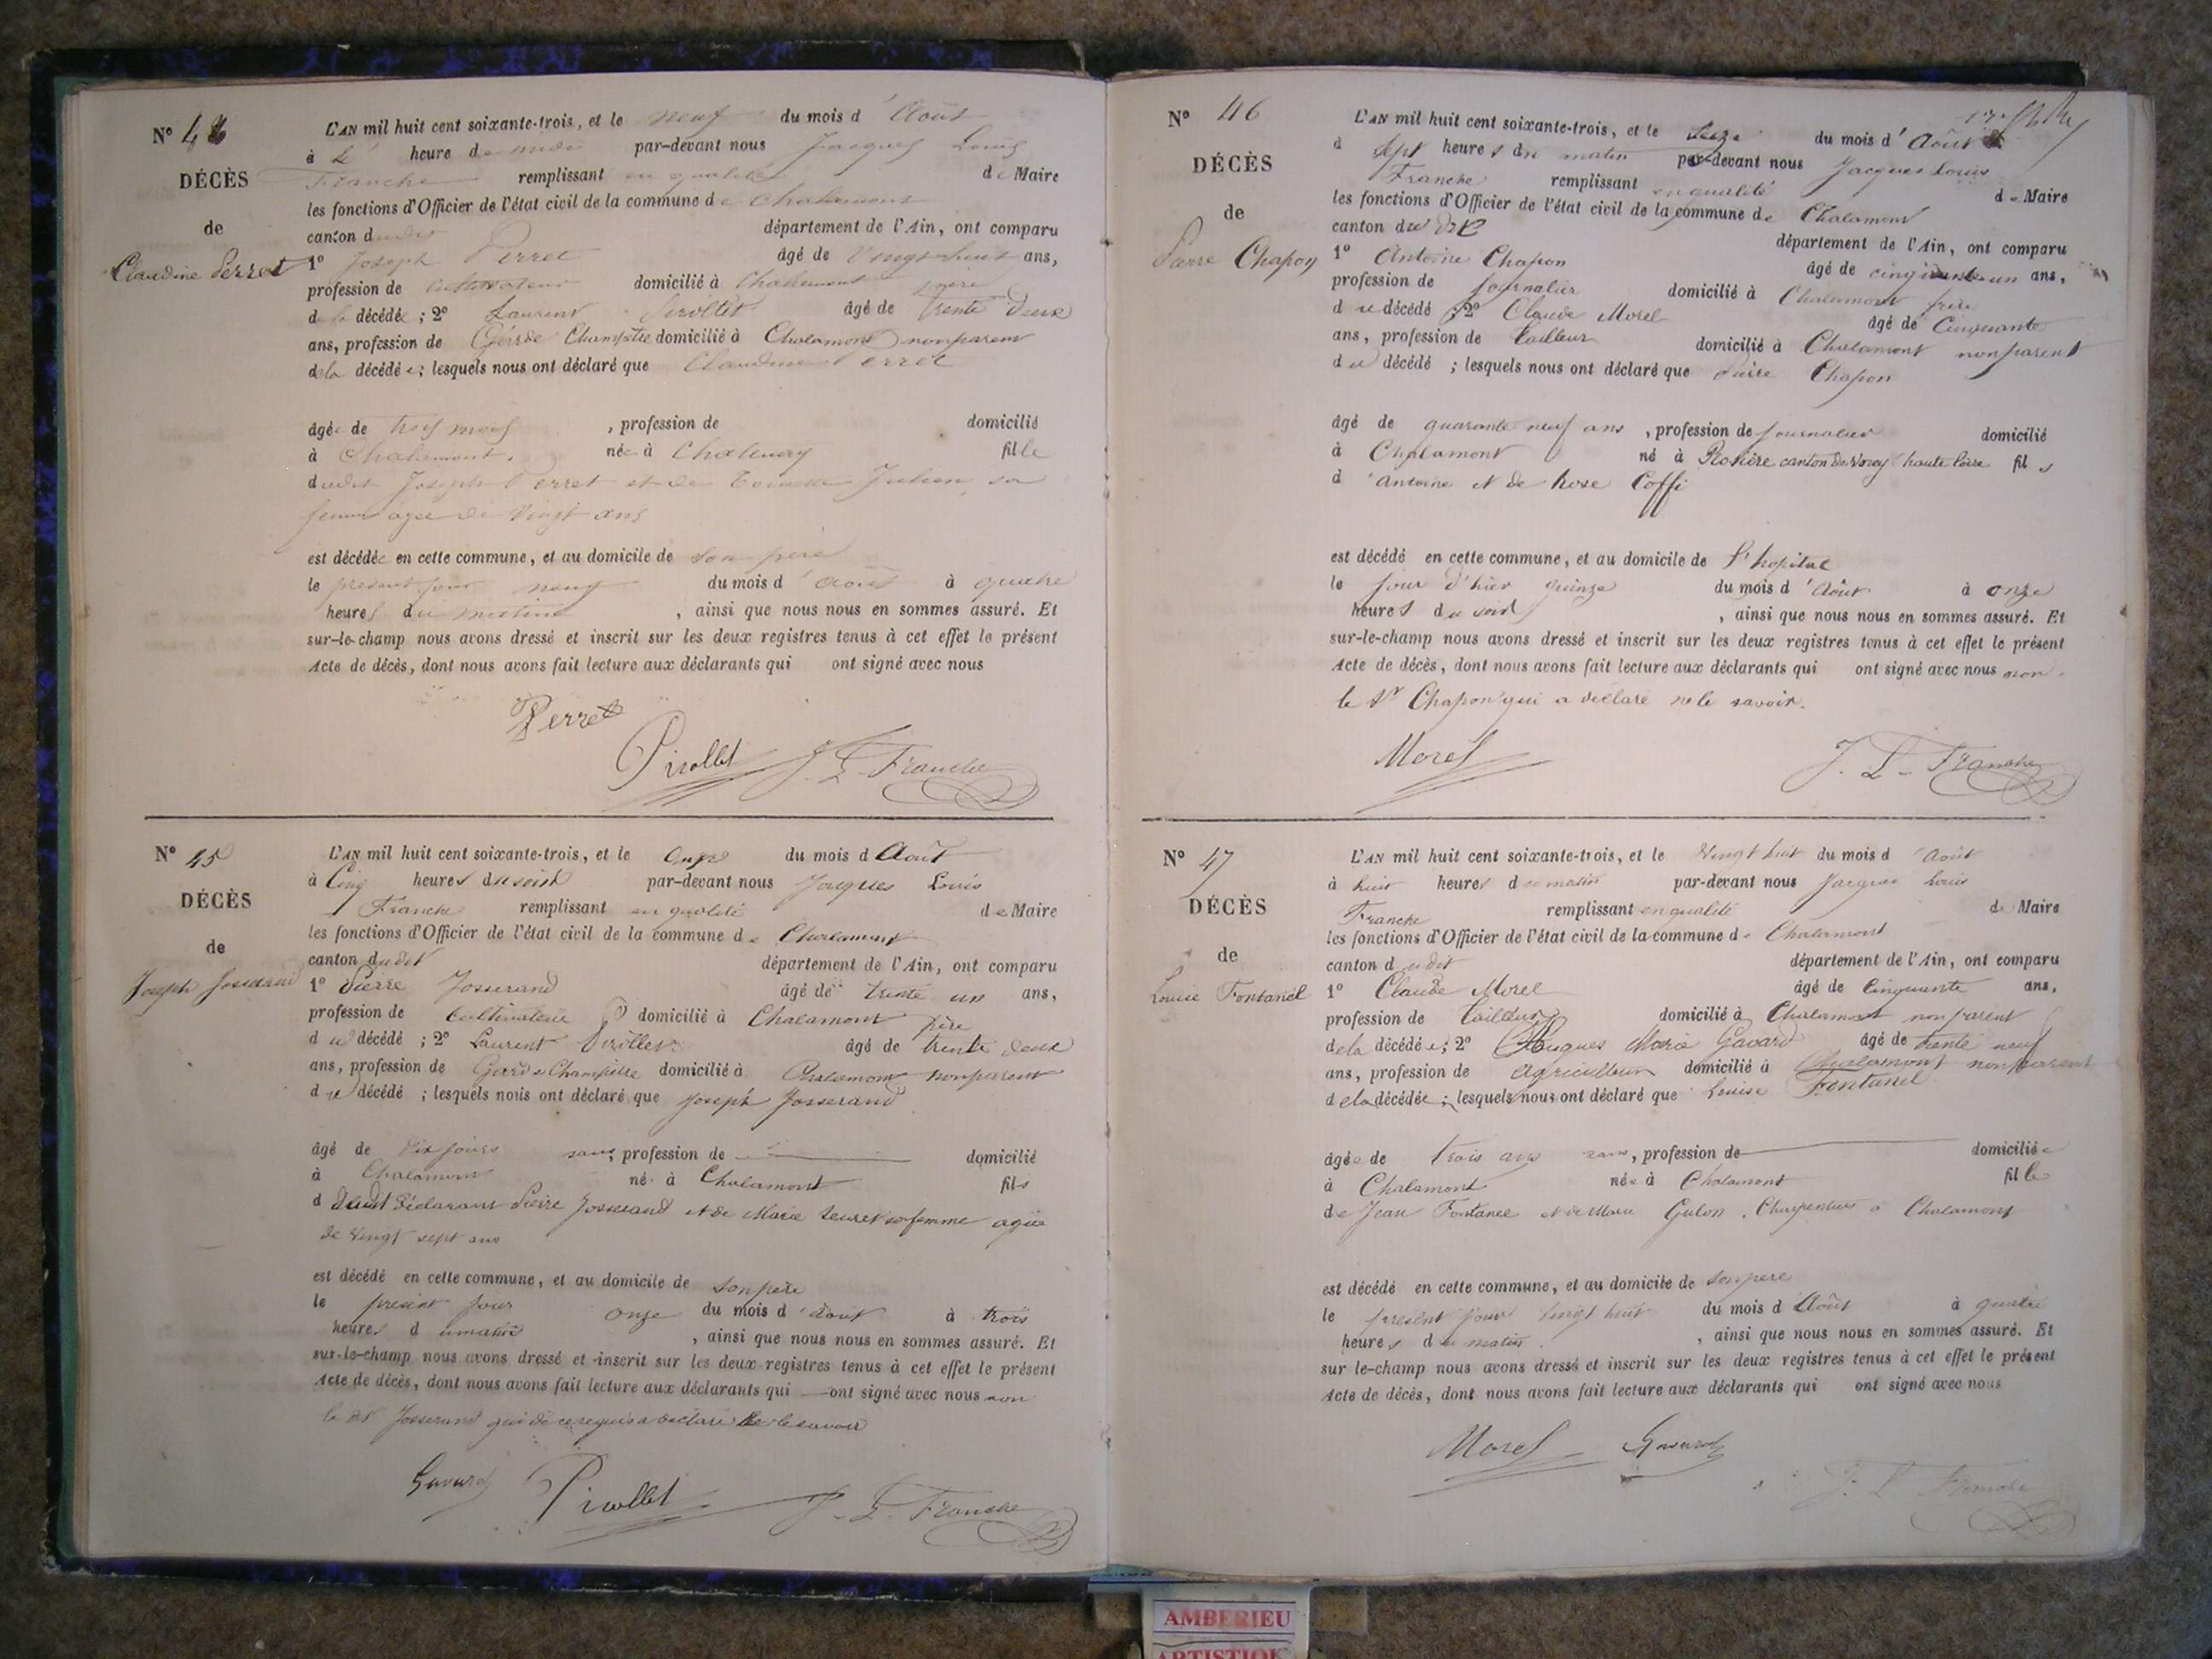 N° 4
DÉCÈS
de
Claudine Perret
L'AN mil huit cent soixante-trois, et le neuf du mois d'Août
à heure de midi par-devant nous Jacques Louis
Franche remplissant en qualité de Maire
les fonctions d'Officier de l'état civil de la commune de Chalamont
canton dudit département de l'Ain, ont comparu
1° Joseph Perret âgé de Vingt huit ans,
profession de cultivateur domicilié à Chalamont père
de la décédée ; 2° Laurent Pirollet âgé de trente Deux
ans, profession de Garde Champêtre domicilié à Chalamont non parent
de la décédée ; lesquels nous ont déclaré que Claudine Perret
âgée de trois mois , profession de domicilié
à Chalamont. née à Chatenay fille
dudit Joseph Perret et de Julien sa
femme agée de Vingt ans
est décédée en cette commune, et au domicile de son père
le présent jour neuf du mois d'août à quatre
heures du matin , ainsi que nous nous en sommes assuré. Et
sur-le-champ nous avons dressé et inscrit sur les deux registres tenus à cet effet le présent
Acte de décès, dont nous avons fait lecture aux déclarants qui ont signé avec nous
Perret
Pirollet J. L. Franche
N° 45
DÉCÈS
de
Joseph Josserand
L'AN mil huit cent soixante-trois, et le onze du mois d Août
à Cinq heures du soir par-devant nous Jacques Louis
Franche remplissant en qualité de Maire
les fonctions d'Officier de l'état civil de la commune de Chalamont
canton dudit département de l'Ain, ont comparu
1° Pierre Josserand âgé de trente un ans,
profession de Cultivateur domicilié à Chalamont père
du décédé ; 2° Laurent Pirollet âgé de trente deux
ans, profession de Garde Champêtre domicilié à Chalamont non parent
du décédé ; lesquels nous ont déclaré que Joseph Josserand
âgé de dix jours sans, profession de domicilié
à Chalamont né à Chalamont fils
d dudit déclarant Pierre Josserand et de Marie sa femme agée
de vingt sept ans
est décédé en cette commune, et au domicile de son père
le présent jour onze du mois d'août à trois
heures d u matin , ainsi que nous nous en sommes assuré. Et
sur-le-champ nous avons dressé et inscrit sur les deux registres tenus à cet effet le présent
Acte de décès, dont nous avons fait lecture aux déclarants qui ont signé avec nous non
le dit Josserand qui de ce requis a déclaré ne le savoir
Gavard Pirollet J. L. Franche
N° 46
DÉCÈS
de
Pierre Chapon
L'AN mil huit cent soixante-trois, et le Seize du mois d'Août
à sept heures du matin par-devant nous Jacques Louis
Franche remplissant en qualité de Maire
les fonctions d'Officier de l'état civil de la commune de Chalamont
canton du dit département de l'Ain, ont comparu
1° Antoine Chapon âgé de cinquante un ans,
profession de Journalier domicilié à Chalamont frère
du décédé ; 2° Claude Morel âgé de Cinquante
ans, profession de tailleur domicilié à Chalamont non parent
du décédé ; lesquels nous ont déclaré que Pierre Chapon
âgé de quarante neuf ans , profession de Journalier domicilié
à Chalamont né à Rosière canton de Vorey haute loire fils
d'Antoine et de Rose Coffi
est décédé en cette commune, et au domicile de l'hopital
le jour d'hier quinze du mois d'Août à onze
heures du soir , ainsi que nous nous en sommes assuré. Et
sur-le-champ nous avons dressé et inscrit sur les deux registres tenus à cet effet le présent
Acte de décès, dont nous avons fait lecture aux déclarants qui ont signé avec nous non
le Sr Chapon qui a déclaré ne le savoir.
Morel J. L. Franche
N° 47
DÉCÈS
de
Louise Fontanel
L'AN mil huit cent soixante-trois, et le Vingt huit du mois d'Août
à huit heures du matin par-devant nous Jacques Louis
Franche remplissant en qualité de Maire
les fonctions d'Officier de l'état civil de la commune de Chalamont
canton dudit département de l'Ain, ont comparu
1° Claude Morel âgé de Cinquante ans,
profession de Tailleur domicilié à Chalamont non parent
de la décédée ; 2° Hugues Marie Gavard âgé de trente neuf
ans, profession de agriculteur domicilié à Chalamont non parent
de la décédée ; lesquels nous ont déclaré que Louise Fontanel
âgée de trois ans sans, profession de domiciliée
à Chalamont née à Chalamont fille
de Jean Fontanel et de Marie Gulon, Charpentier à Chalamont
est décédé en cette commune, et au domicile de son père
le présent jour vingt huit du mois d Août à quatre
heures du matin , ainsi que nous nous en sommes assuré. Et
sur le-champ nous avons dressé et inscrit sur les deux registres tenus à cet effet le présent
Acte de décès, dont nous avons fait lecture aux déclarants qui ont signé avec nous
Morel Gavard
J. L. Franche
AMBERIEU
ARTISTIQUE